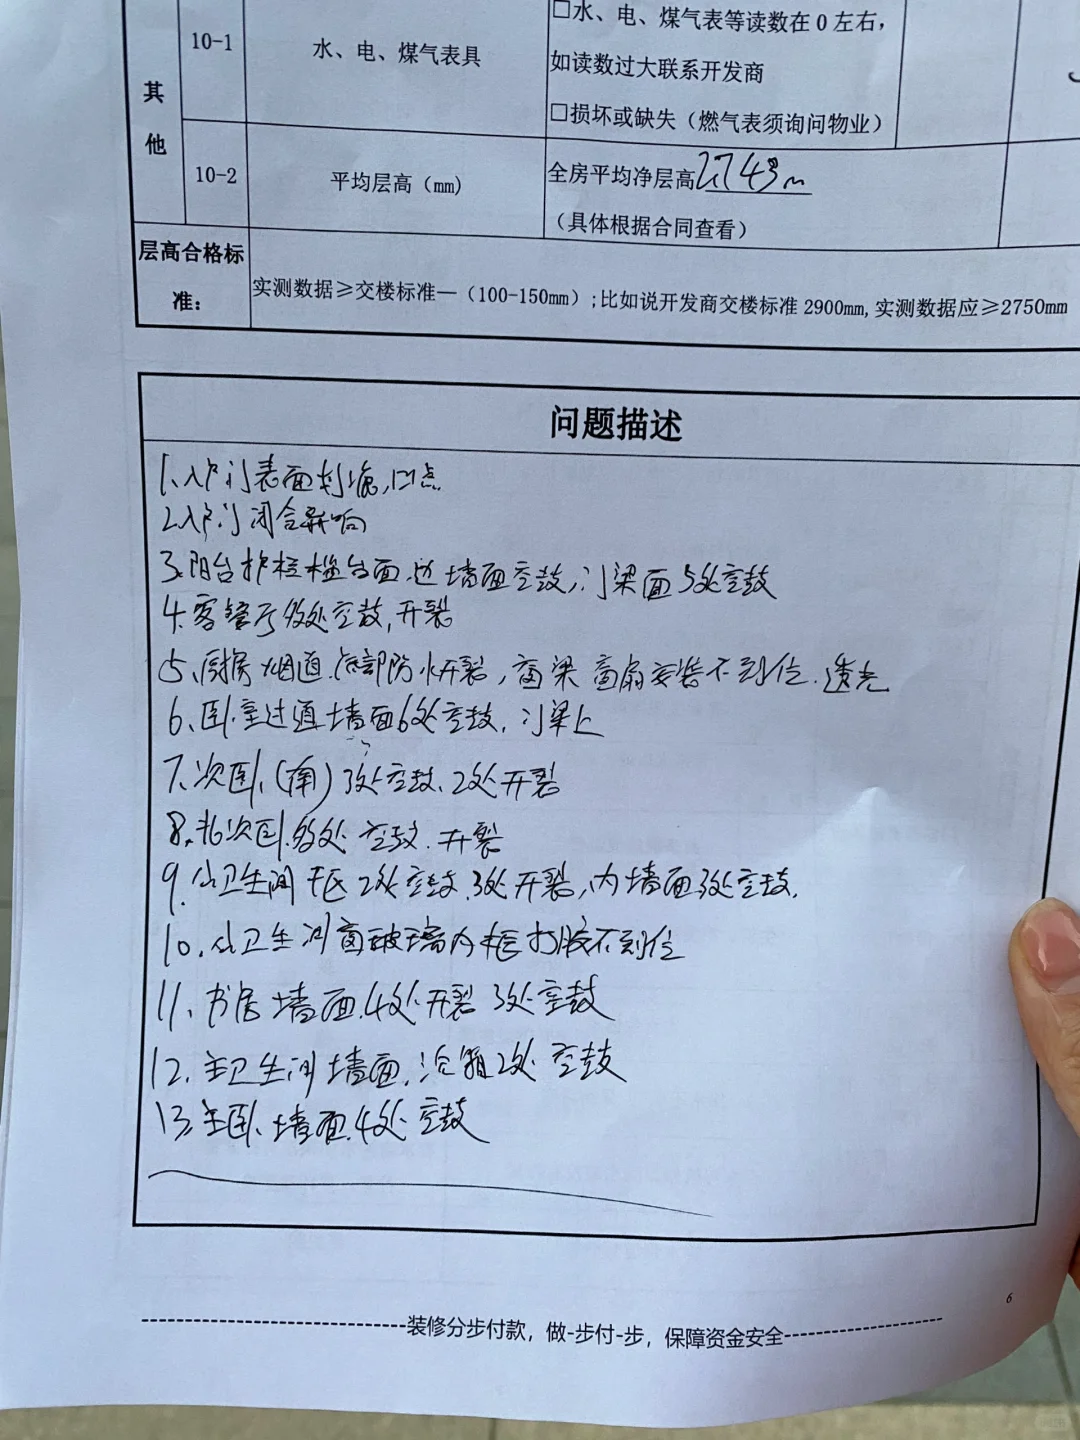 10-1
水、电、煤气表具
□水、电、煤气表等读数在0左右，
如读数过大联系开发商
□损坏或缺失（燃气表须询问物业）
其他
10-2
平均层高（mm）
全房平均净层高 2.743m
（具体根据合同查看）
层高合格标
准：
实测数据≥交楼标准—（100-150mm）;比如说开发商交楼标准 2900mm,实测数据应≥2750mm
问题描述
1.入户门表面划痕,凹点
2.入户门闭合异响
3.阳台护栏 台面.边墙面空鼓,门梁面5处空鼓
4.客餐厅多处空鼓,开裂
5、厨房烟道.底部防水开裂,窗梁 窗扇安装不到位.透光
6、卧室过道墙面6处空鼓.门梁上
7、次卧.(南)3处空鼓.2处开裂
8.北次卧.多处空鼓.开裂
9.公卫生间干区2处空鼓.3处开裂,内墙面3处空鼓.
10.公卫生间窗玻璃内框打胶不到位
11.书房墙面.4处开裂3处空鼓
12.主卫生间墙面. 2处空鼓
13.主卧.墙面.4处空鼓
6
装修分步付款，做-步付-步，保障资金安全